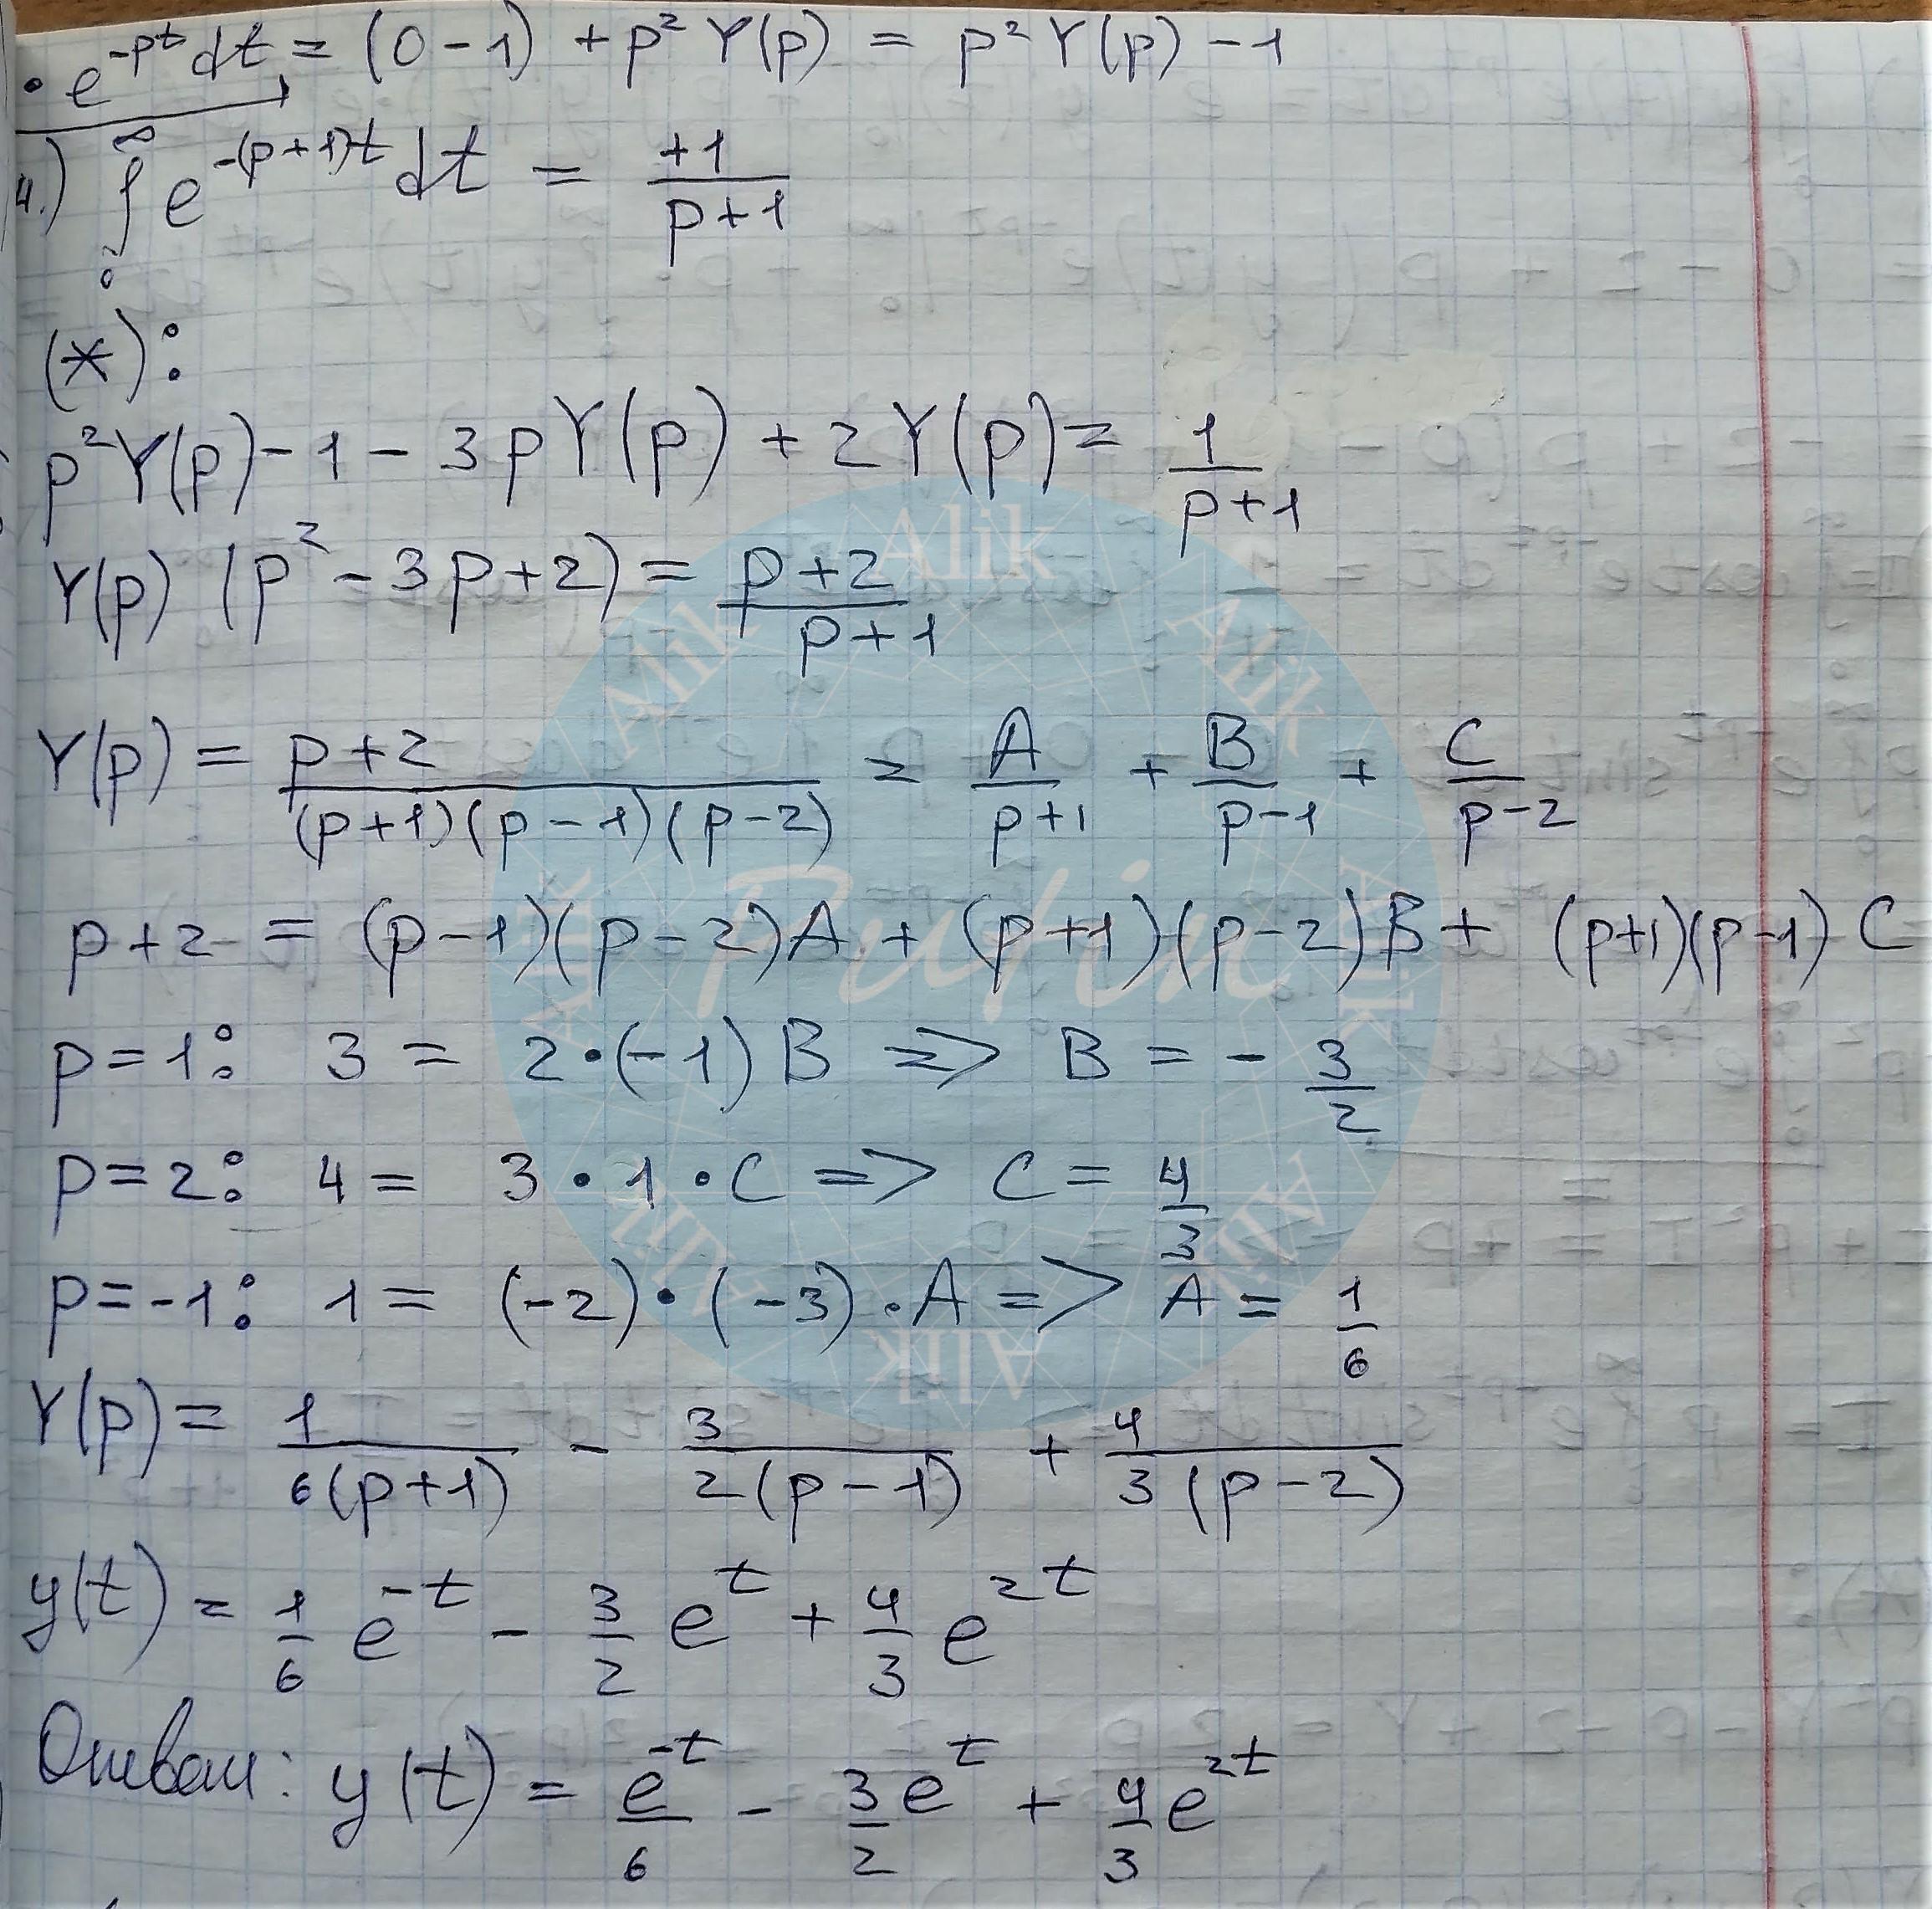 • e^{-pt} dt = (0 - 1) + p² Y(p) = p² Y(p) - 1
4.) ∫₀^∞ e^{-(p+1)t} dt = +1/(p+1)
(*):
p²Y(p) - 1 - 3pY(p) + 2Y(p) = 1/(p+1)
Y(p) (p² - 3p + 2) = (p+2)/(p+1)
Y(p) = (p+2)/((p+1)(p-1)(p-2)) = A/(p+1) + B/(p-1) + C/(p-2)
p+2 = (p-1)(p-2)A + (p+1)(p-2)B + (p+1)(p-1)C
p=1: 3 = 2•(-1)B => B = -3/2
p=2: 4 = 3•1•C => C = 4/3
p=-1: 1 = (-2)•(-3)•A => A = 1/6
Y(p) = 1/(6(p+1)) - 3/(2(p-1)) + 4/(3(p-2))
y(t) = 1/6 e^{-t} - 3/2 e^{t} + 4/3 e^{2t}
Ответ: y(t) = e^{-t}/6 - 3/2 e^{t} + 4/3 e^{2t}
Alik
Alik
Alik
Alik
Alik
Alik
Alik
Alik
Putin